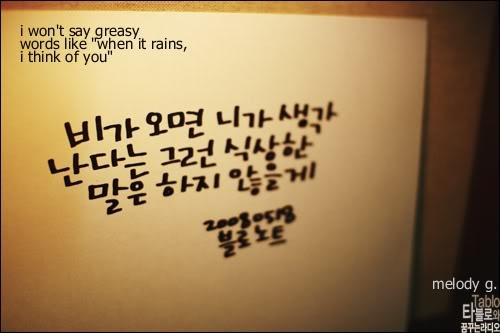 i won't say greasy
words like "when it rains,
i think of you"
비가 오면 니가 생각
난다는 그런 식상한
말은 하지 않을게
20080518
블로노트
melody g.
Tablo
타블로와
꿈꾸는라디오